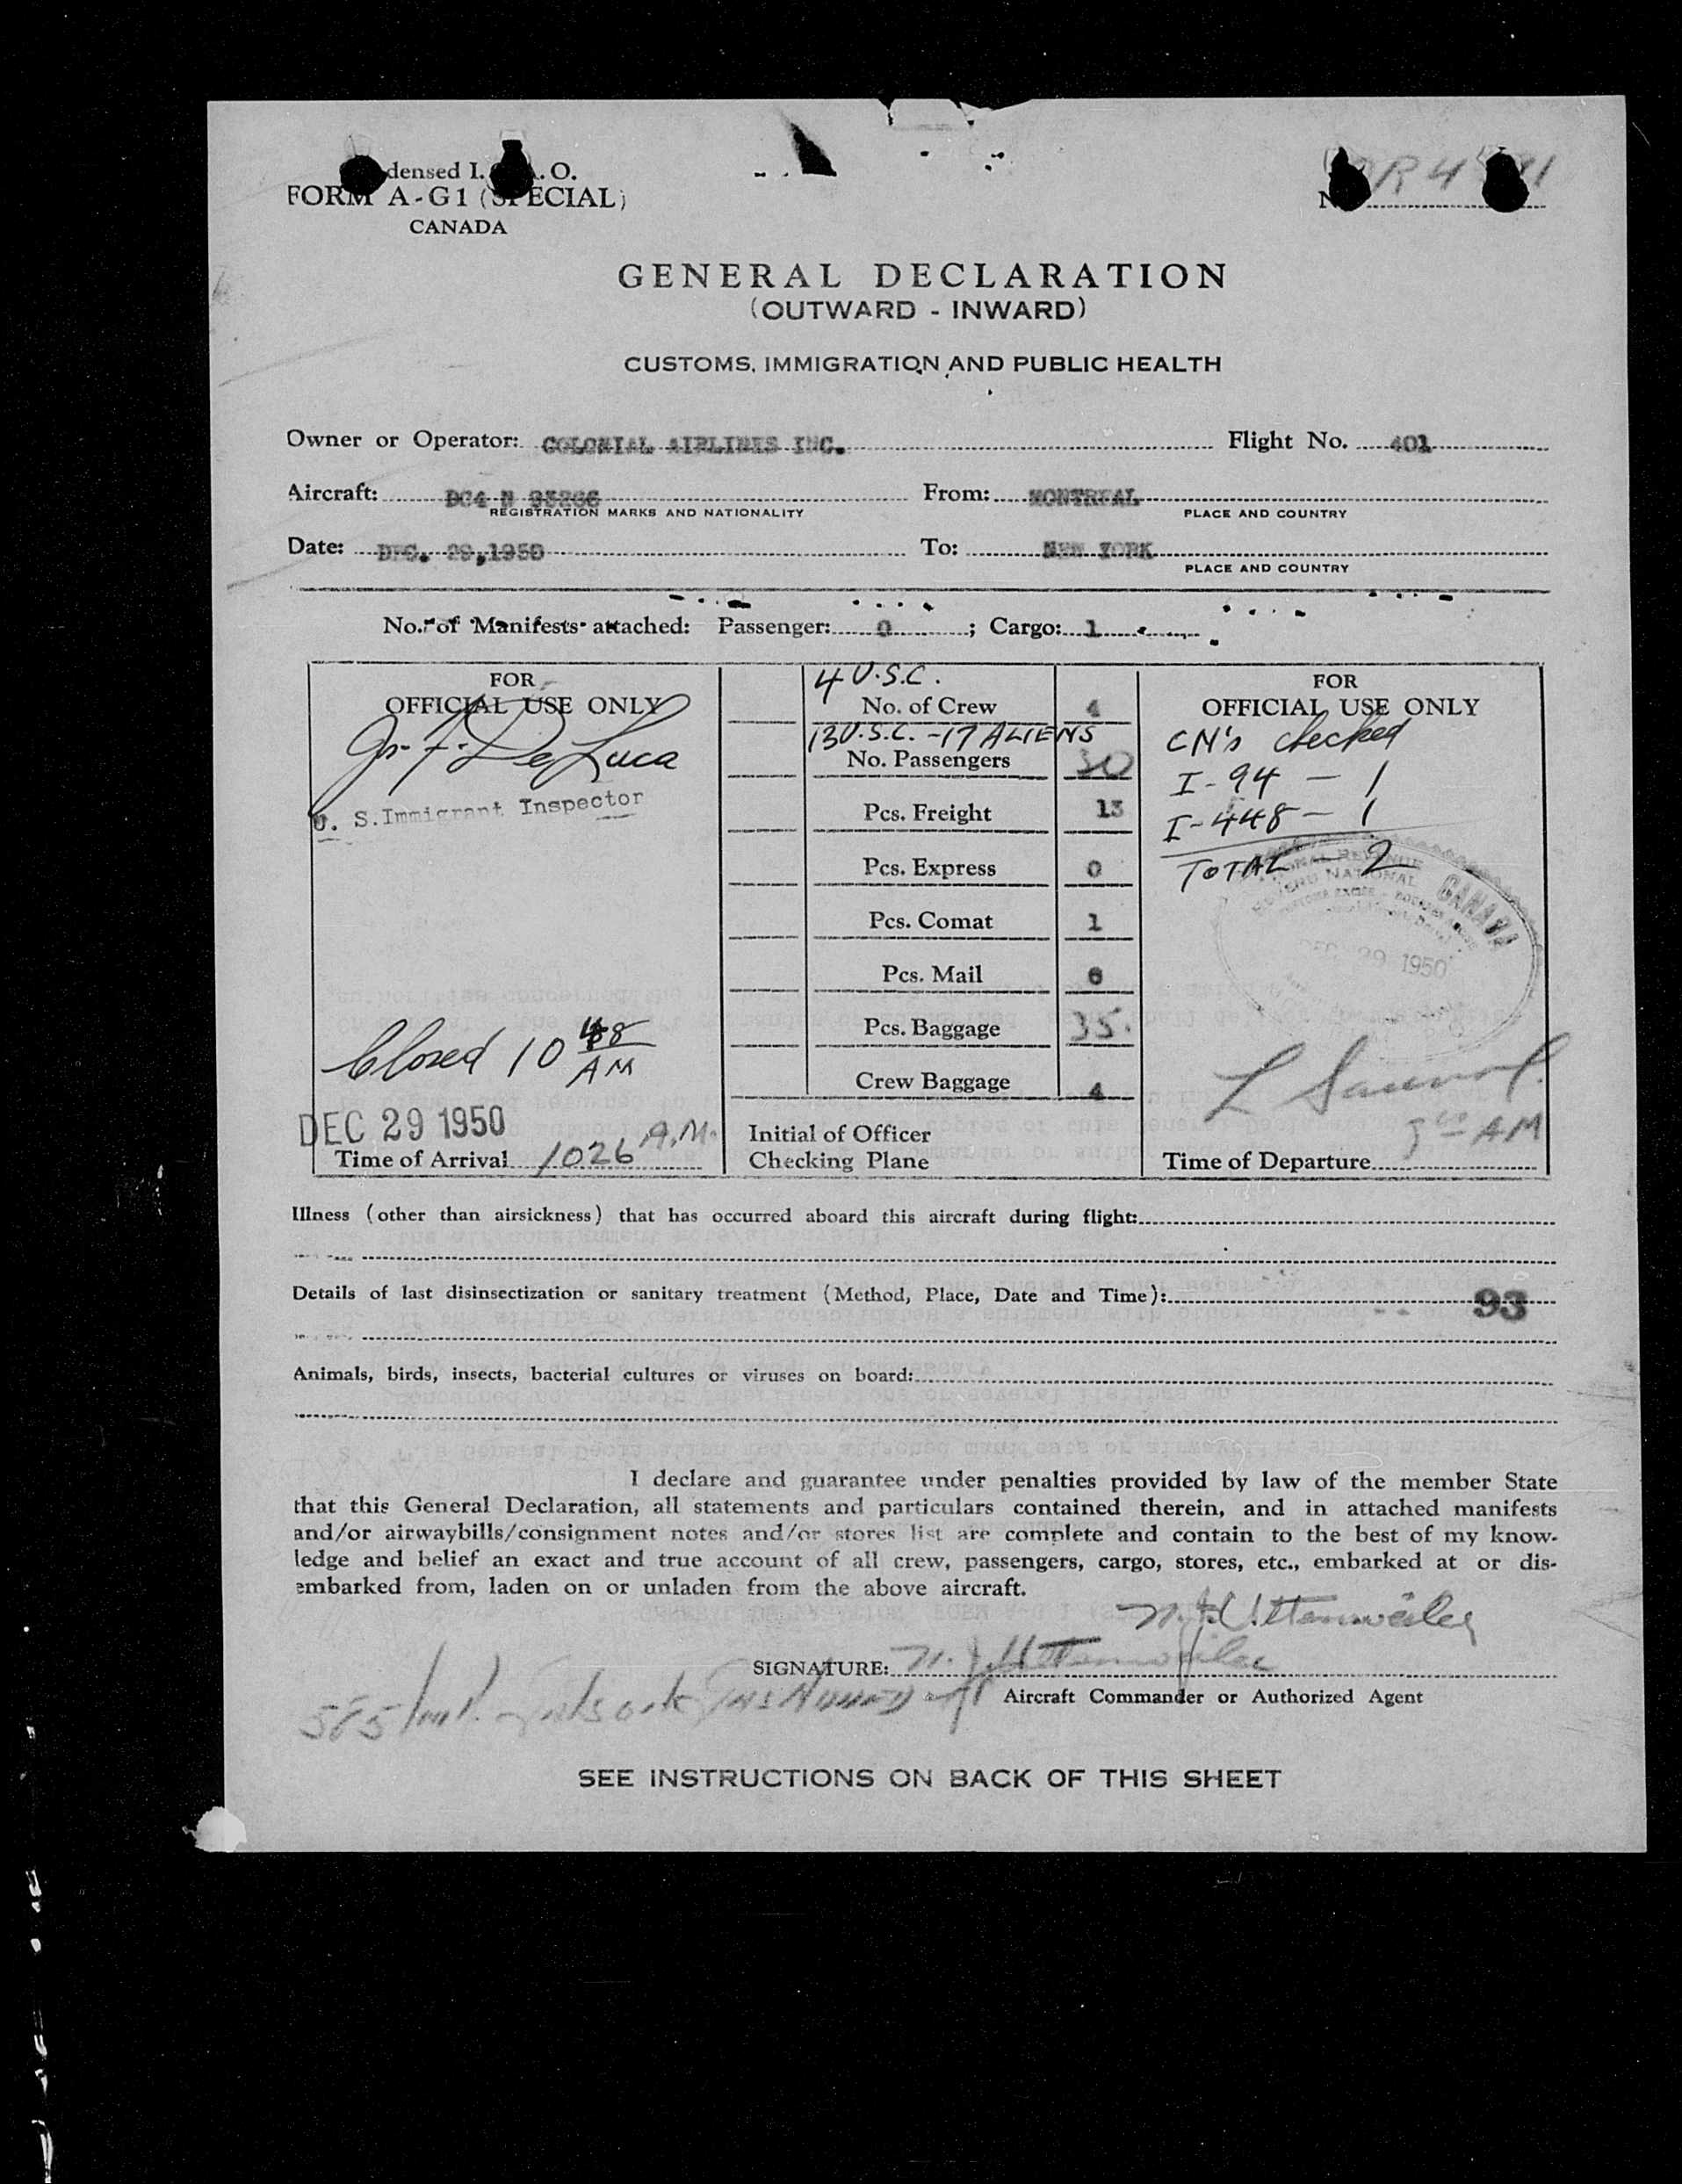 densed I. . O.
FORM A-G1 (SPECIAL)
CANADA
GENERAL DECLARATION
(OUTWARD - INWARD)
CUSTOMS, IMMIGRATION AND PUBLIC HEALTH
Owner or Operator: COLONIAL AIRLINES INC. Flight No. 401
Aircraft: DC4 N From: MONTREAL
REGISTRATION MARKS AND NATIONALITY PLACE AND COUNTRY
Date: DEC. 29,1950 To: NEW YORK
PLACE AND COUNTRY
No. of Manifests attached: Passenger: 0 ; Cargo: 1
FOR
OFFICIAL USE ONLY
De Luca
U. S. Immigrant Inspector
Closed 10 48
AM
DEC 29 1950
Time of Arrival 1026 A.M.
4 U.S.C.
No. of Crew 4
13 U.S.C. - 17 ALIENS
No. Passengers 30
Pcs. Freight 13
Pcs. Express 0
Pcs. Comat 1
Pcs. Mail 6
Pcs. Baggage 35
Crew Baggage 4
Initial of Officer
Checking Plane
FOR
OFFICIAL USE ONLY
CN's checked
I-94 - 1
I-448 - 1
TOTAL - 2
CANADA
DEC 29 1950
AM
Time of Departure
Illness (other than airsickness) that has occurred aboard this aircraft during flight:
Details of last disinsectization or sanitary treatment (Method, Place, Date and Time):
93
Animals, birds, insects, bacterial cultures or viruses on board:
I declare and guarantee under penalties provided by law of the member State
that this General Declaration, all statements and particulars contained therein, and in attached manifests
and/or airwaybills/consignment notes and/or stores list are complete and contain to the best of my know-
ledge and belief an exact and true account of all crew, passengers, cargo, stores, etc., embarked at or dis-
embarked from, laden on or unladen from the above aircraft.
SIGNATURE:
Aircraft Commander or Authorized Agent
SEE INSTRUCTIONS ON BACK OF THIS SHEET